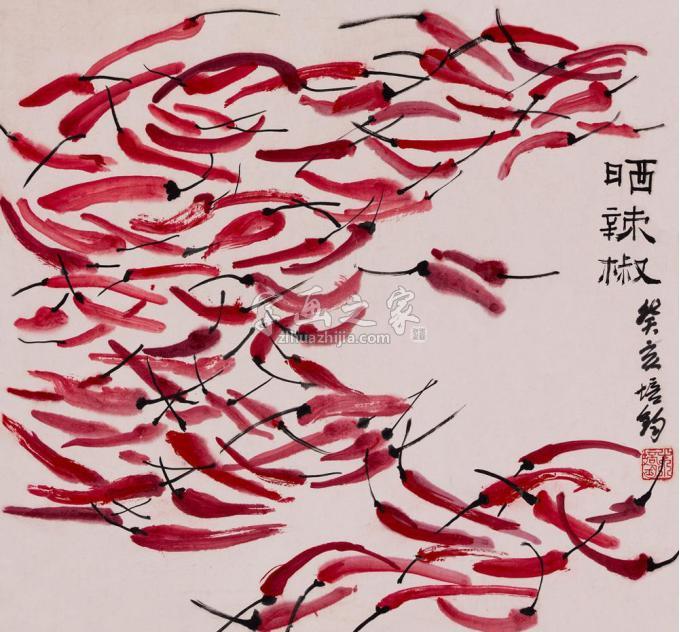 晒辣椒
癸亥培钧
字画之家
zihuazhijia.com